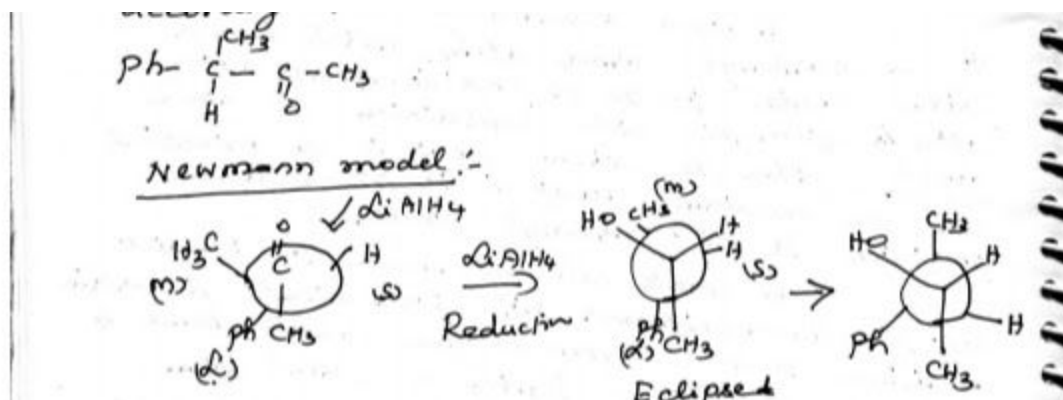 CH3
Ph- C - C - CH3
H O
Newmann model :-
LiAlH4
O
H3C C H
(m) (s)
Ph CH3
(L)
LiAlH4
Reduction
(m)
HO CH3 H
H
(s)
Ph
(L) CH3
Eclipsed
CH3
HO H
Ph H
CH3